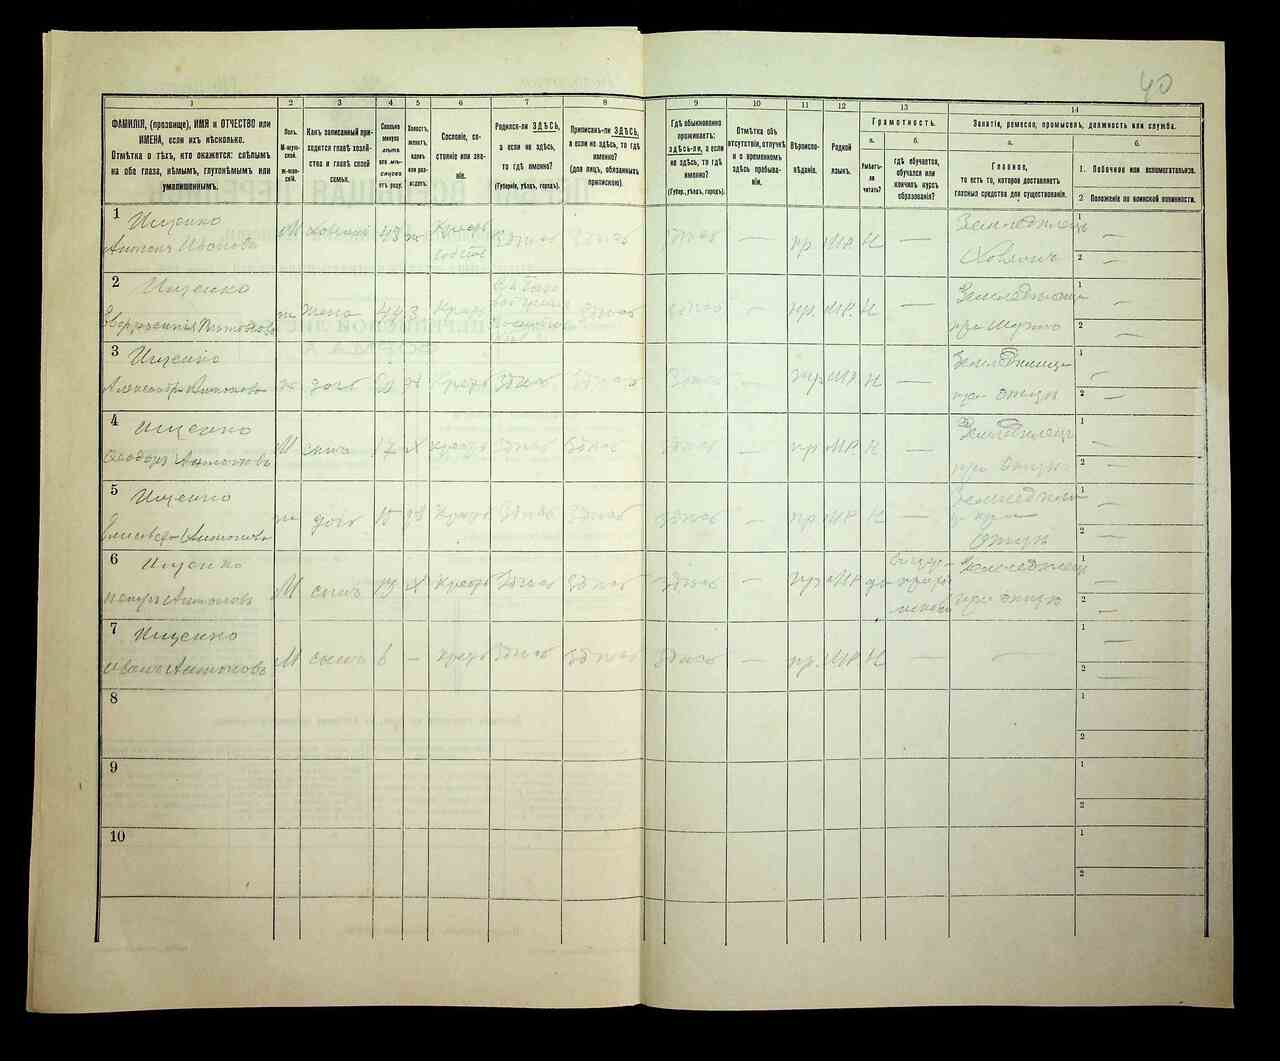 40
1 2 3 4 5 6 7 8 9 10 11 12 13 14
ФАМИЛІЯ, (прозвище), ИМЯ и ОТЧЕСТВО или
ИМЕНА, если ихъ нѣсколько.
Отмѣтка о тѣхъ, кто окажется: слѣпымъ
на оба глаза, нѣмымъ, глухонѣмымъ или
умалишеннымъ.
Полъ.
М-муж-
ской.
Ж-жен-
скій.
Какъ записанный при-
ходится главѣ хозяй-
ства и главѣ своей
семьи.
Сколько
минуло
лѣтъ
или мѣ-
сяцевъ
отъ роду.
Холостъ,
женатъ,
вдовъ
или раз-
веденъ.
Сословіе, со-
стояніе или зва-
ніе.
Родился-ли ЗДѢСЬ,
а если не здѣсь,
то гдѣ именно?
(Губернія, уѣздъ, городъ).
Приписанъ-ли ЗДѢСЬ,
а если не здѣсь, то гдѣ
именно?
(для лицъ, обязанныхъ
припискою).
Гдѣ обыкновенно
проживаетъ:
здѣсь-ли, а если
не здѣсь, то гдѣ
именно?
(Губер., уѣздъ, городъ).
Отмѣтка объ
отсутствіи, отлучкѣ
и о временномъ
здѣсь пребыва-
ніи.
Вѣроиспо-
вѣданіе.
Родной
языкъ.
Грамотность.
а.
Умѣетъ-
ли
читать?
б.
гдѣ обучается,
обучался или
кончилъ курсъ
образованія?
Занятіе, ремесло, промыселъ, должность или служба.
а.
Главное,
то есть то, которое доставляетъ
главныя средства для существованія.
б.
1. Побочное или вспомогательное.
2 Положеніе по воинской повинности.
1 Ищенко
Антонъ Ивановъ М хозяинъ 43 ж Здѣсь Здѣсь Здѣсь — пр. МР. Н — Земледѣлецъ
Хозяинъ
1 —
2 —
2 Ищенко
ж жена 44 З Крест Здѣсь Здѣсь — пр. МР. Н — при мужѣ
1
2 —
3 Ищенко
Антонова ж дочь Крест Здѣсь Здѣсь Здѣсь — пр. МР. Н —
при отцѣ
1 —
2 —
4 Ищенко
Ѳеодоръ Антоновъ М сынъ 17 Х Крест Здѣсь Здѣсь Здѣсь — пр. МР. Н — Земледѣлецъ
при отцѣ
1 —
2 —
5 Ищенко
Антонова ж дочь 15 Крест Здѣсь Здѣсь Здѣсь — пр. МР. Н —
при
отцѣ
1 —
2 —
6 Ищенко
Петръ Антоновъ М сынъ 13 Х Крест Здѣсь Здѣсь Здѣсь — пр. МР. да Земледѣлецъ
при отцѣ
1 —
2 —
7 Ищенко
Иванъ Антоновъ М сынъ 6 — Крест Здѣсь Здѣсь Здѣсь — пр. МР. Н — —
1 —
2 —
8
1
2
9
1
2
10
1
2